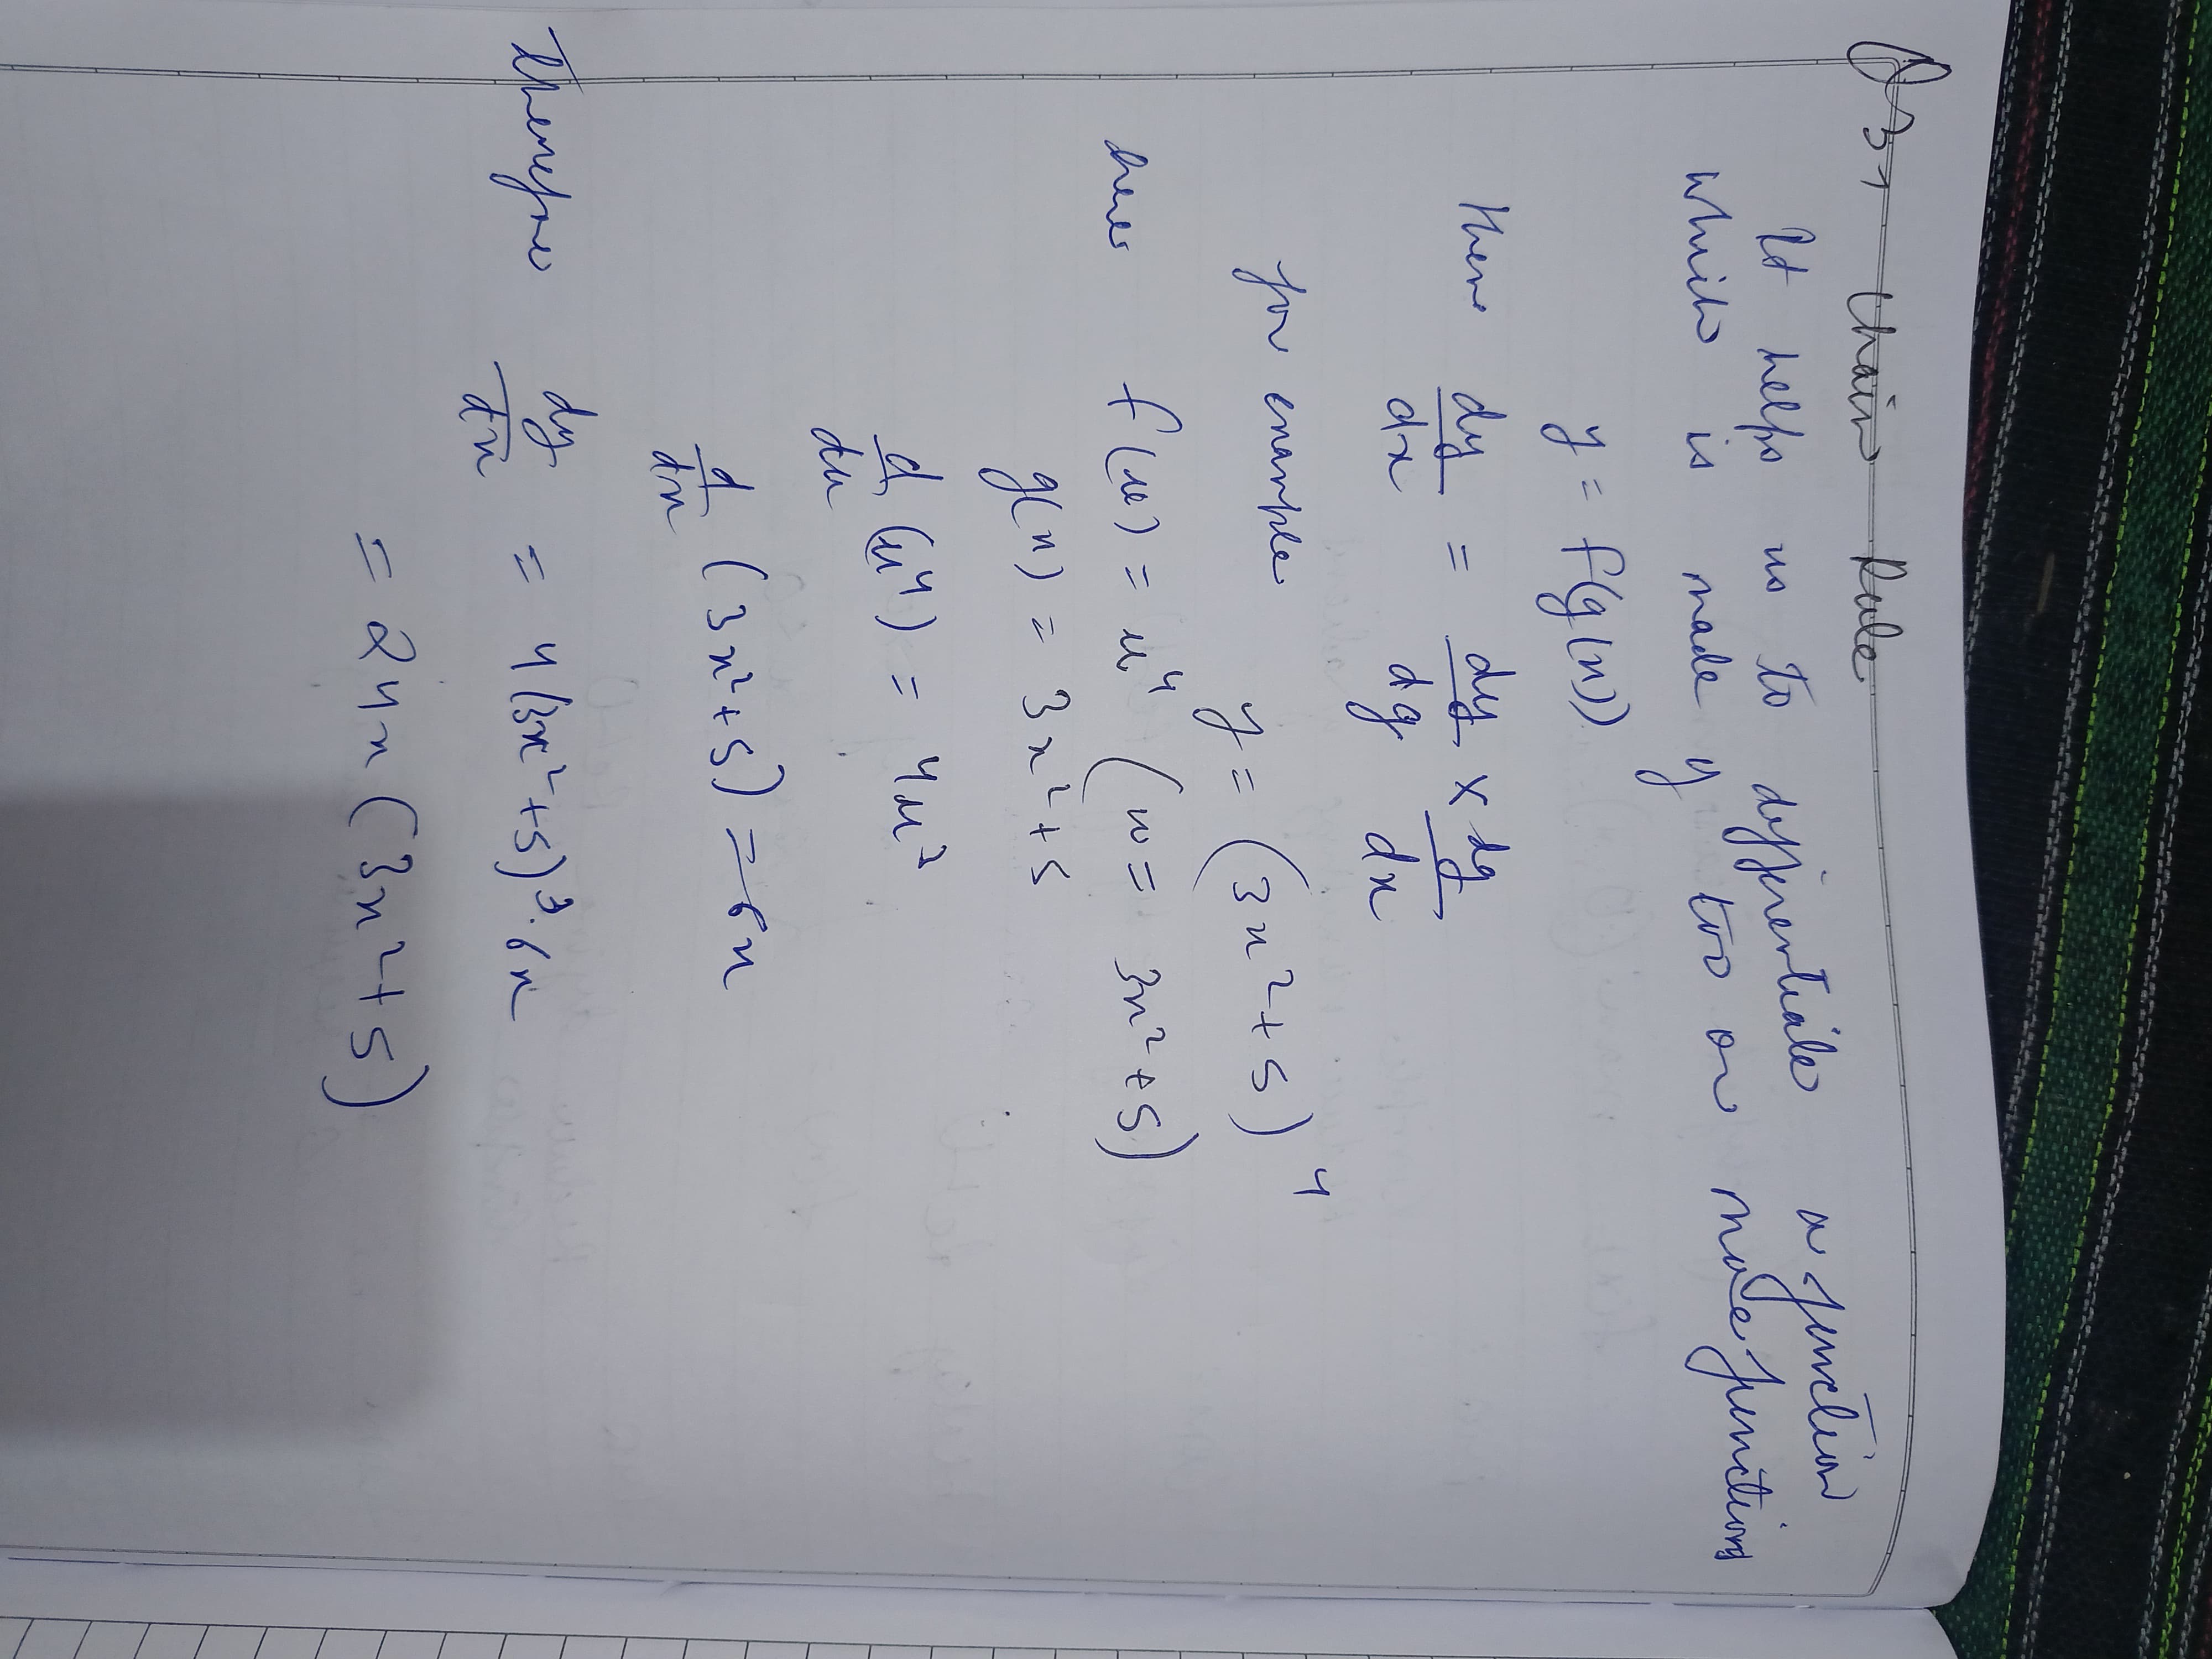 Q3, Chain Rule
It helps us to differentiate a function
which is made of two or more functions
y = f(g(x))
then dy/dx = dy/dg × dg/dx
for example y = (3x²+5)⁴
here f(u) = u⁴ (u = 3x²+5)
g(x) = 3x²+5
d/du (u⁴) = 4u³
d/dx (3x²+5) = 6x
Therefore dy/dx = 4(3x²+5)³.6x
= 24x (3x²+5)